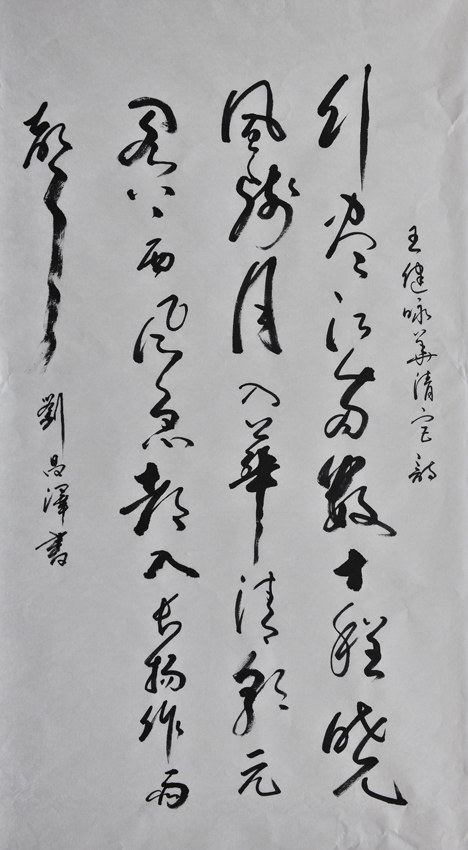 王健咏華清宫
行盡江南數十程曉
風殘月入華清朝元
閣上西風急都入長楊作雨
聲 劉昌澤書